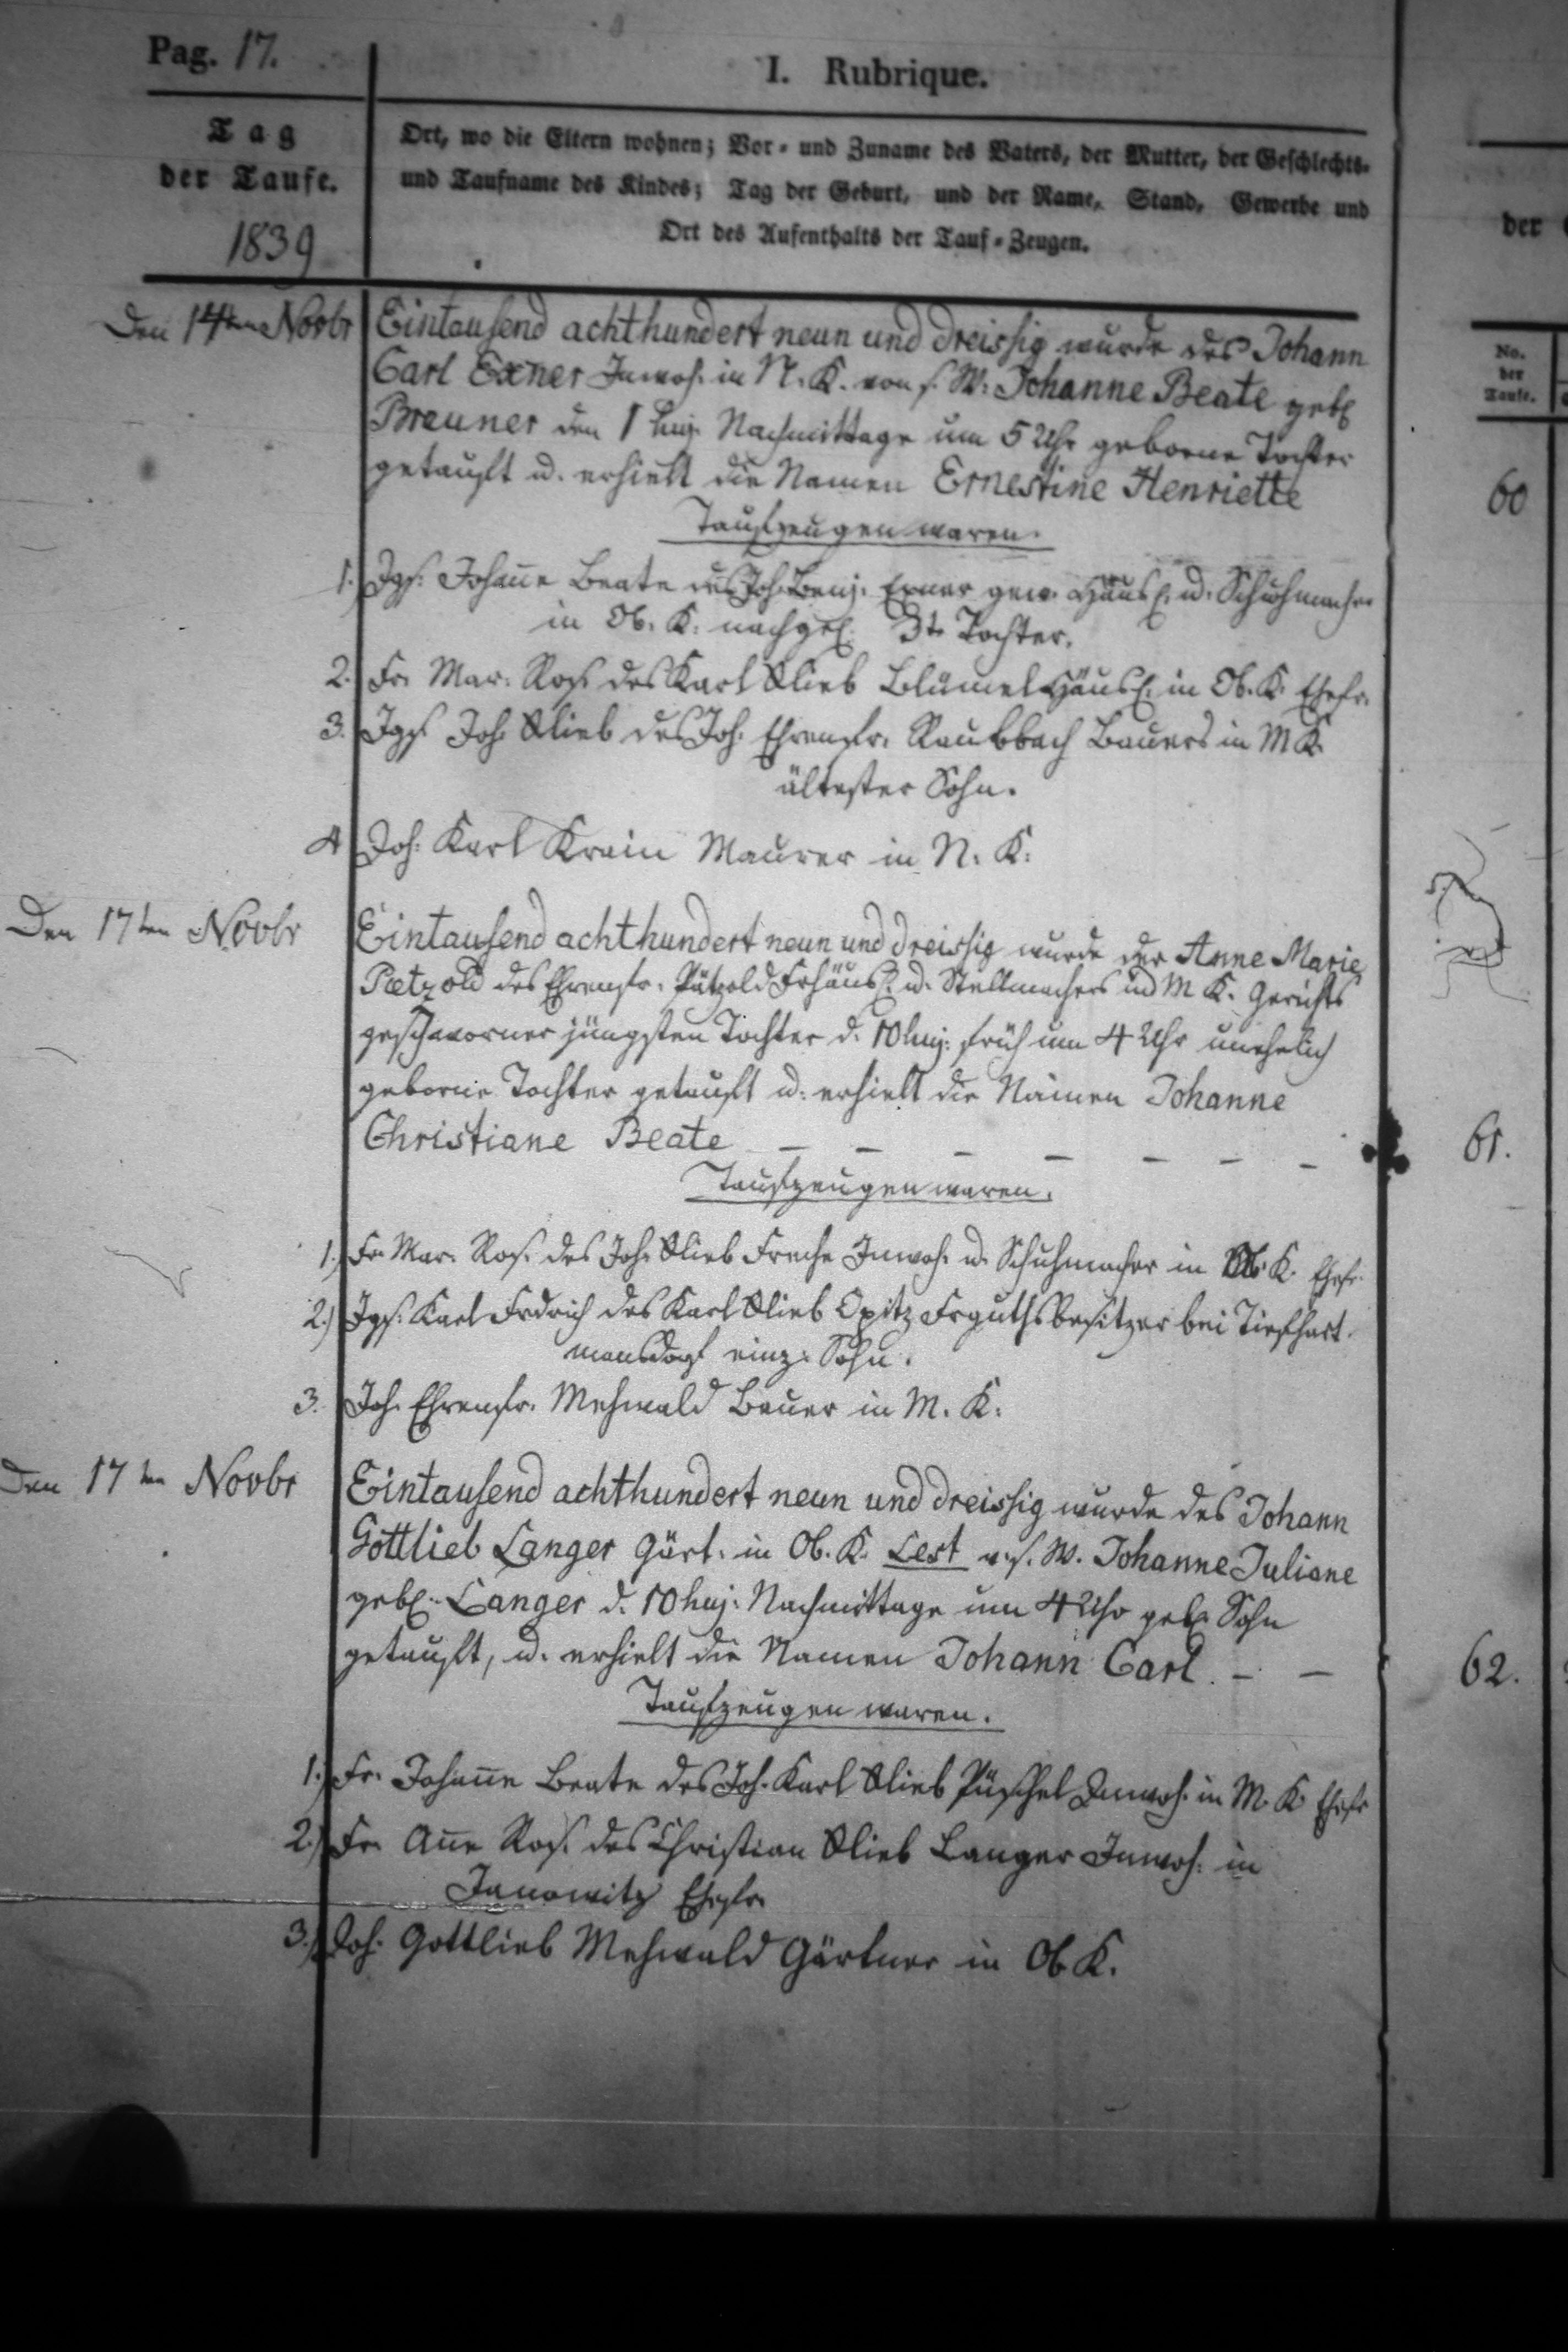 Pag. 17.
I. Rubrique.
Tag
der Taufe.
1839
Ort, wo die Eltern wohnen; Vor- und Zuname des Vaters, der Mutter, der Geschlechts-
und Taufname des Kindes; Tag der Geburt, und der Name, Stand, Gewerbe und
Ort des Aufenthalts der Tauf-Zeugen.
der
No.
der
Taufe.
Den 14ten Novbr Eintausend achthundert neun und dreissig wurde des Johann
Carl Exner Inwoh. in N. K. von s. W. Johanne Beate geb.
Breuner den 1 huj. Nachmittage um 5 Uhr geborne Tochter
getauft u. erhielt die Namen Ernestine Henriette
60
Taufzeugen waren.
1. Jgf. Johanne Beate des Joh. Benj. Exner gew. Häusl. u. Schuhmacher
in Ob. K. nachgel. 3te Tochter.
2. Fr. Mar. Ros. des Karl Glieb Blümel Häusl. in Ob. K. Ehefr.
3. Jggs. Joh. Glieb des Joh. Ehrenfr. Raubbach Bauers in M K.
ältester Sohn.
4 Joh. Karl Krain Maurer in N. K.
Den 17ten Novbr Eintausend achthundert neun und dreissig wurde der Anne Marie
Pætzold des Ehrenfr. Pätzold Frhäusl. u. Stellmachers in M K. Gerichts
geschworner jüngsten Tochter d. 10 huj. früh um 4 Uhr unehelich
geborne Tochter getauft u. erhielt die Namen Johanne
Christiane Beate – – – – – – –
61.
Taufzeugen waren.
1.) Fr. Mar. Ros. des Joh. Glieb Freche Inwoh. u. Schuhmacher in Ob. K. Ehefr.
2.) Jggs. Karl Frdrich des Karl Glieb Opitz Frguthsbesitzer bei Tiefhart-
mansdorf einz. Sohn.
3. Joh. Ehrenfr. Mehwald Bauer in M. K.
Den 17ten Novbr Eintausend achthundert neun und dreissig wurde des Johann
Gottlieb Langer Gärt. in Ob. K. Lest v. s. W. Johanne Juliane
geb. Langer d. 10 huj. Nachmittage um 4 Uhr geb. Sohn
getauft, u. erhielt die Namen Johann Carl. – –
62.
Taufzeugen waren.
1.) Fr. Johanne Beate des Joh. Karl Glieb Püschel Inwoh. in M. K. Ehefr
2.) Fr. Anne Ros. des Christian Glieb Langer Inwoh. in
Janowitz Ehefr.
3.) Joh. Gottlieb Mehwald Gärtner in Ob. K.